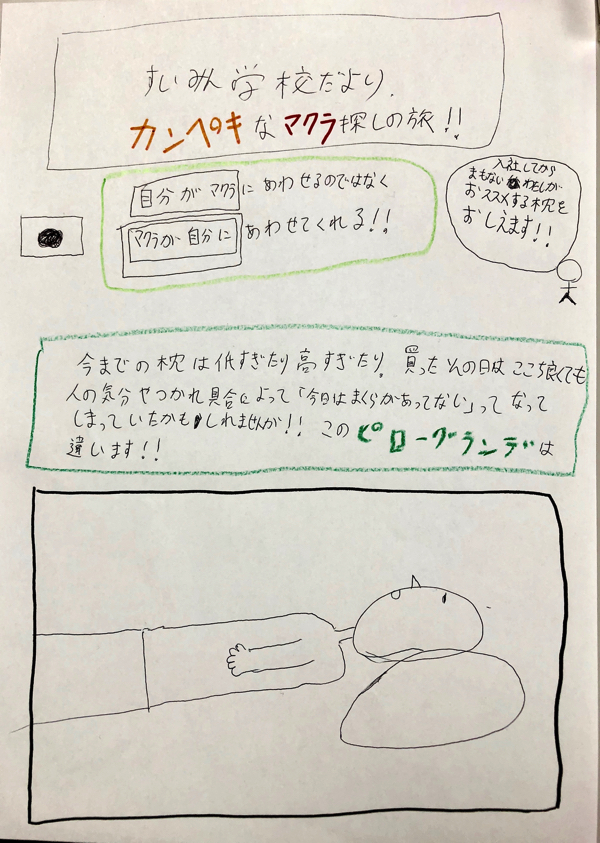 すいみん学校だより.
カンペキなマクラ探しの旅!!
自分がマクラにあわせるのではなく
マクラが自分にあわせてくれる!!
入社してから
まもないわたしが
おススメする枕を
おしえます!!
今までの枕は低すぎたり高すぎたり。買ったその日はここち良くても
人の気分やつかれ具合によって「今日はまくらがあってない」ってなって
しまっていたかもしれませんが!!このピローグランデは
違います!!